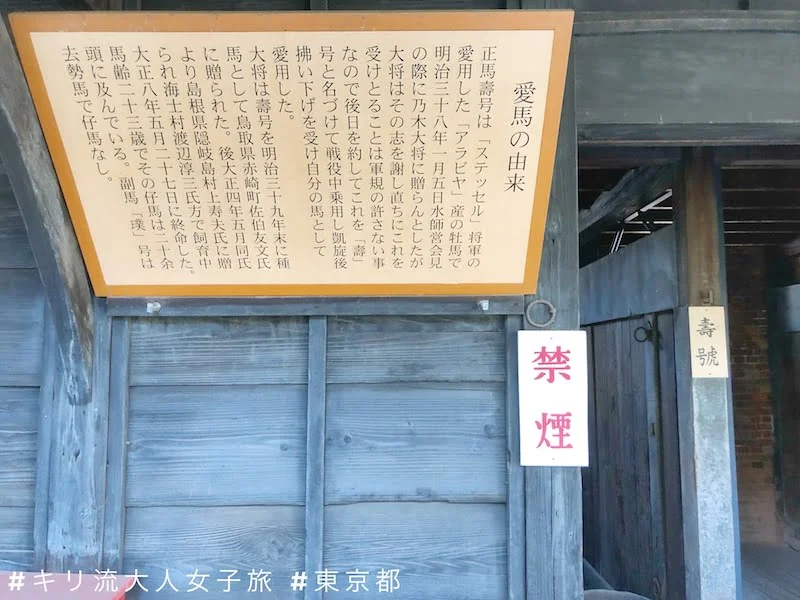 愛馬の由来
正馬壽号は「ステッセル」将軍の
愛用した「アラビヤ」産の牡馬で
明治三十八年一月五日水師営会見
の際に乃木大将に贈らんとしたが
大将はその志を謝し直ちにこれを
受けとることは軍規の許さない事
なので後日を約してこれを「壽」
号と名づけて戦役中乗用し凱旋後
拂い下げを受け自分の馬として
愛用した。
大将は壽号を明治三十九年末に種
馬として鳥取県赤崎町佐伯友文氏
に贈られた。後大正四年五月同氏
より島根県隠岐島村上寿夫氏に贈
られ海士村渡辺淳三氏方で飼育中
大正八年五月二十七日に終命した。
馬齢二十三歳でその仔馬は二十余
頭に及んでいる。副馬「璞」号は
去勢馬で仔馬なし。
禁煙
壽號
#キリ流大人女子旅 #東京都